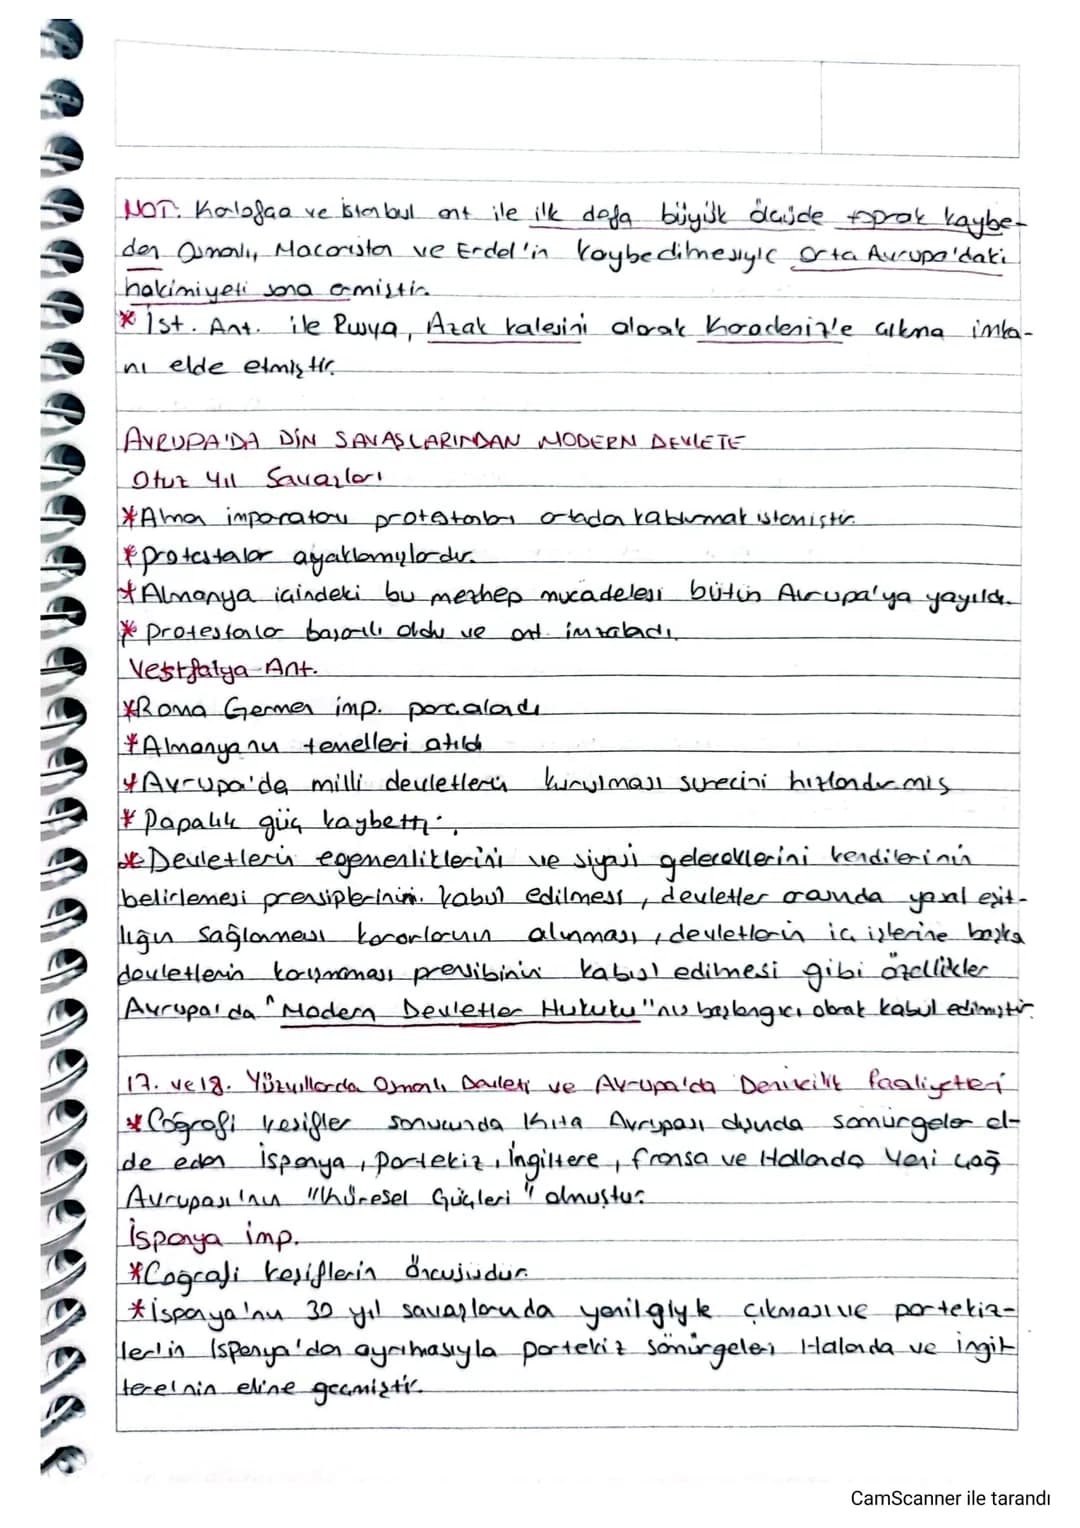 NOT: Karlofça ve İstanbul ant ile ilk defa büyük ölçüde toprak kaybe-
den Osmanlı, Macaristan ve Erdel'in kaybedilmesiyle Orta Avrupa'daki
hakimiyeti sona ermiştir.
* İst. Ant. ile Rusya, Azak kalesini alarak Karadeniz'e çıkma imka-
nı elde etmiştir.
AVRUPA'DA DİN SAVAŞLARINDAN MODERN DEVLETE
Otuz Yıl Savaşları
*Alman imparatoru protestanları ortadan kaldırmak istemiştir.
*protestalar ayaklanmışlardır.
*Almanya içindeki bu mezhep mücadelesi bütün Avrupa'ya yayıldı.
* Protestanlar başarılı oldu ve ant. imzaladı.
Vestfalya Ant.
*Roma Germen imp. parçalandı
*Almanyanın temelleri atıldı
*Avrupa'da milli devletlerin kurulması sürecini hızlandırmış
* Papalık güç kaybetti.
*Devletlerin egemenliklerini ve siyasi geleceklerini kendilerinin
belirlemesi prensiplerinin kabul edilmesi, devletler arasında yasal eşit-
liğin sağlanması kararlarının alınması, devletlerin iç işlerine başka
devletlerin karışmaması prensibinin kabul edilmesi gibi özellikler
Avrupa'da "Modern Devletler Hukuku"nun başlangıcı olarak kabul edilmiştir.
17. ve 18. Yüzyıllarda Osmanlı Devleti ve Avrupa'da Denizcilik Faaliyetleri
*Coğrafi keşifler sonucunda Kıta Avrupası dışında sömürgeler el-
de eden İspanya, Portekiz, İngiltere, fransa ve Hollanda Yeni Çağ
Avrupası'nın "Küresel Güçleri" olmuştur.
İspanya imp.
*Coğrafi keşiflerin öncüsüdür.
*İspanya'nın 30 yıl savaşlarında yenilgiyle çıkması ve portekiz-
lerlin İspanya'dan ayrılmasıyla portekiz sömürgeleri Halanda ve ingil
tere'nin eline geçmiştir.
CamScanner ile tarandı